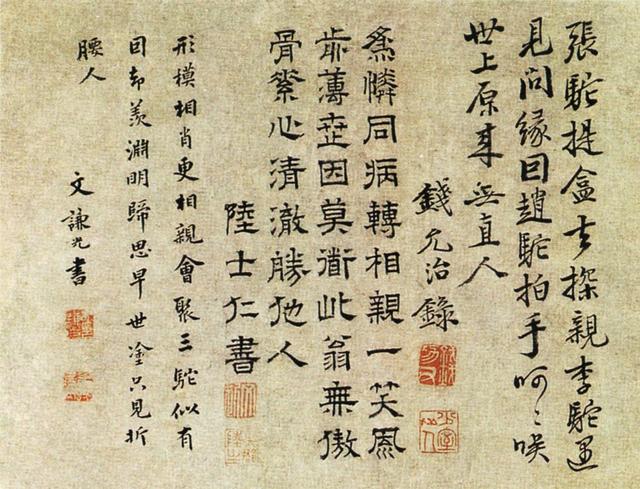 張駝提盒去探親李駝遇
見問緣因趙駝拍手呵〻咲
世上原來無直人
錢允治錄
爲憐同病轉相親一笑風
歬薄世因莫衜此翁無傲
骨素心清澈勝他人
陸士仁書
形模相肖更相親會聚三駝似有
因却羨淵明歸思早世塗只見折
腰人
文謙光書